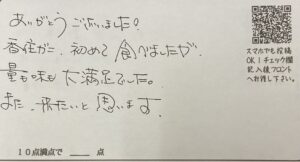 ありがとうございました!
香住がに、初めて食べましたが、
量も味も大満足でした。
また、来たいと思います。
スマホでも投稿
OK！チェック欄
記入後フロント
へお渡し下さい。
10点満点で＿＿点